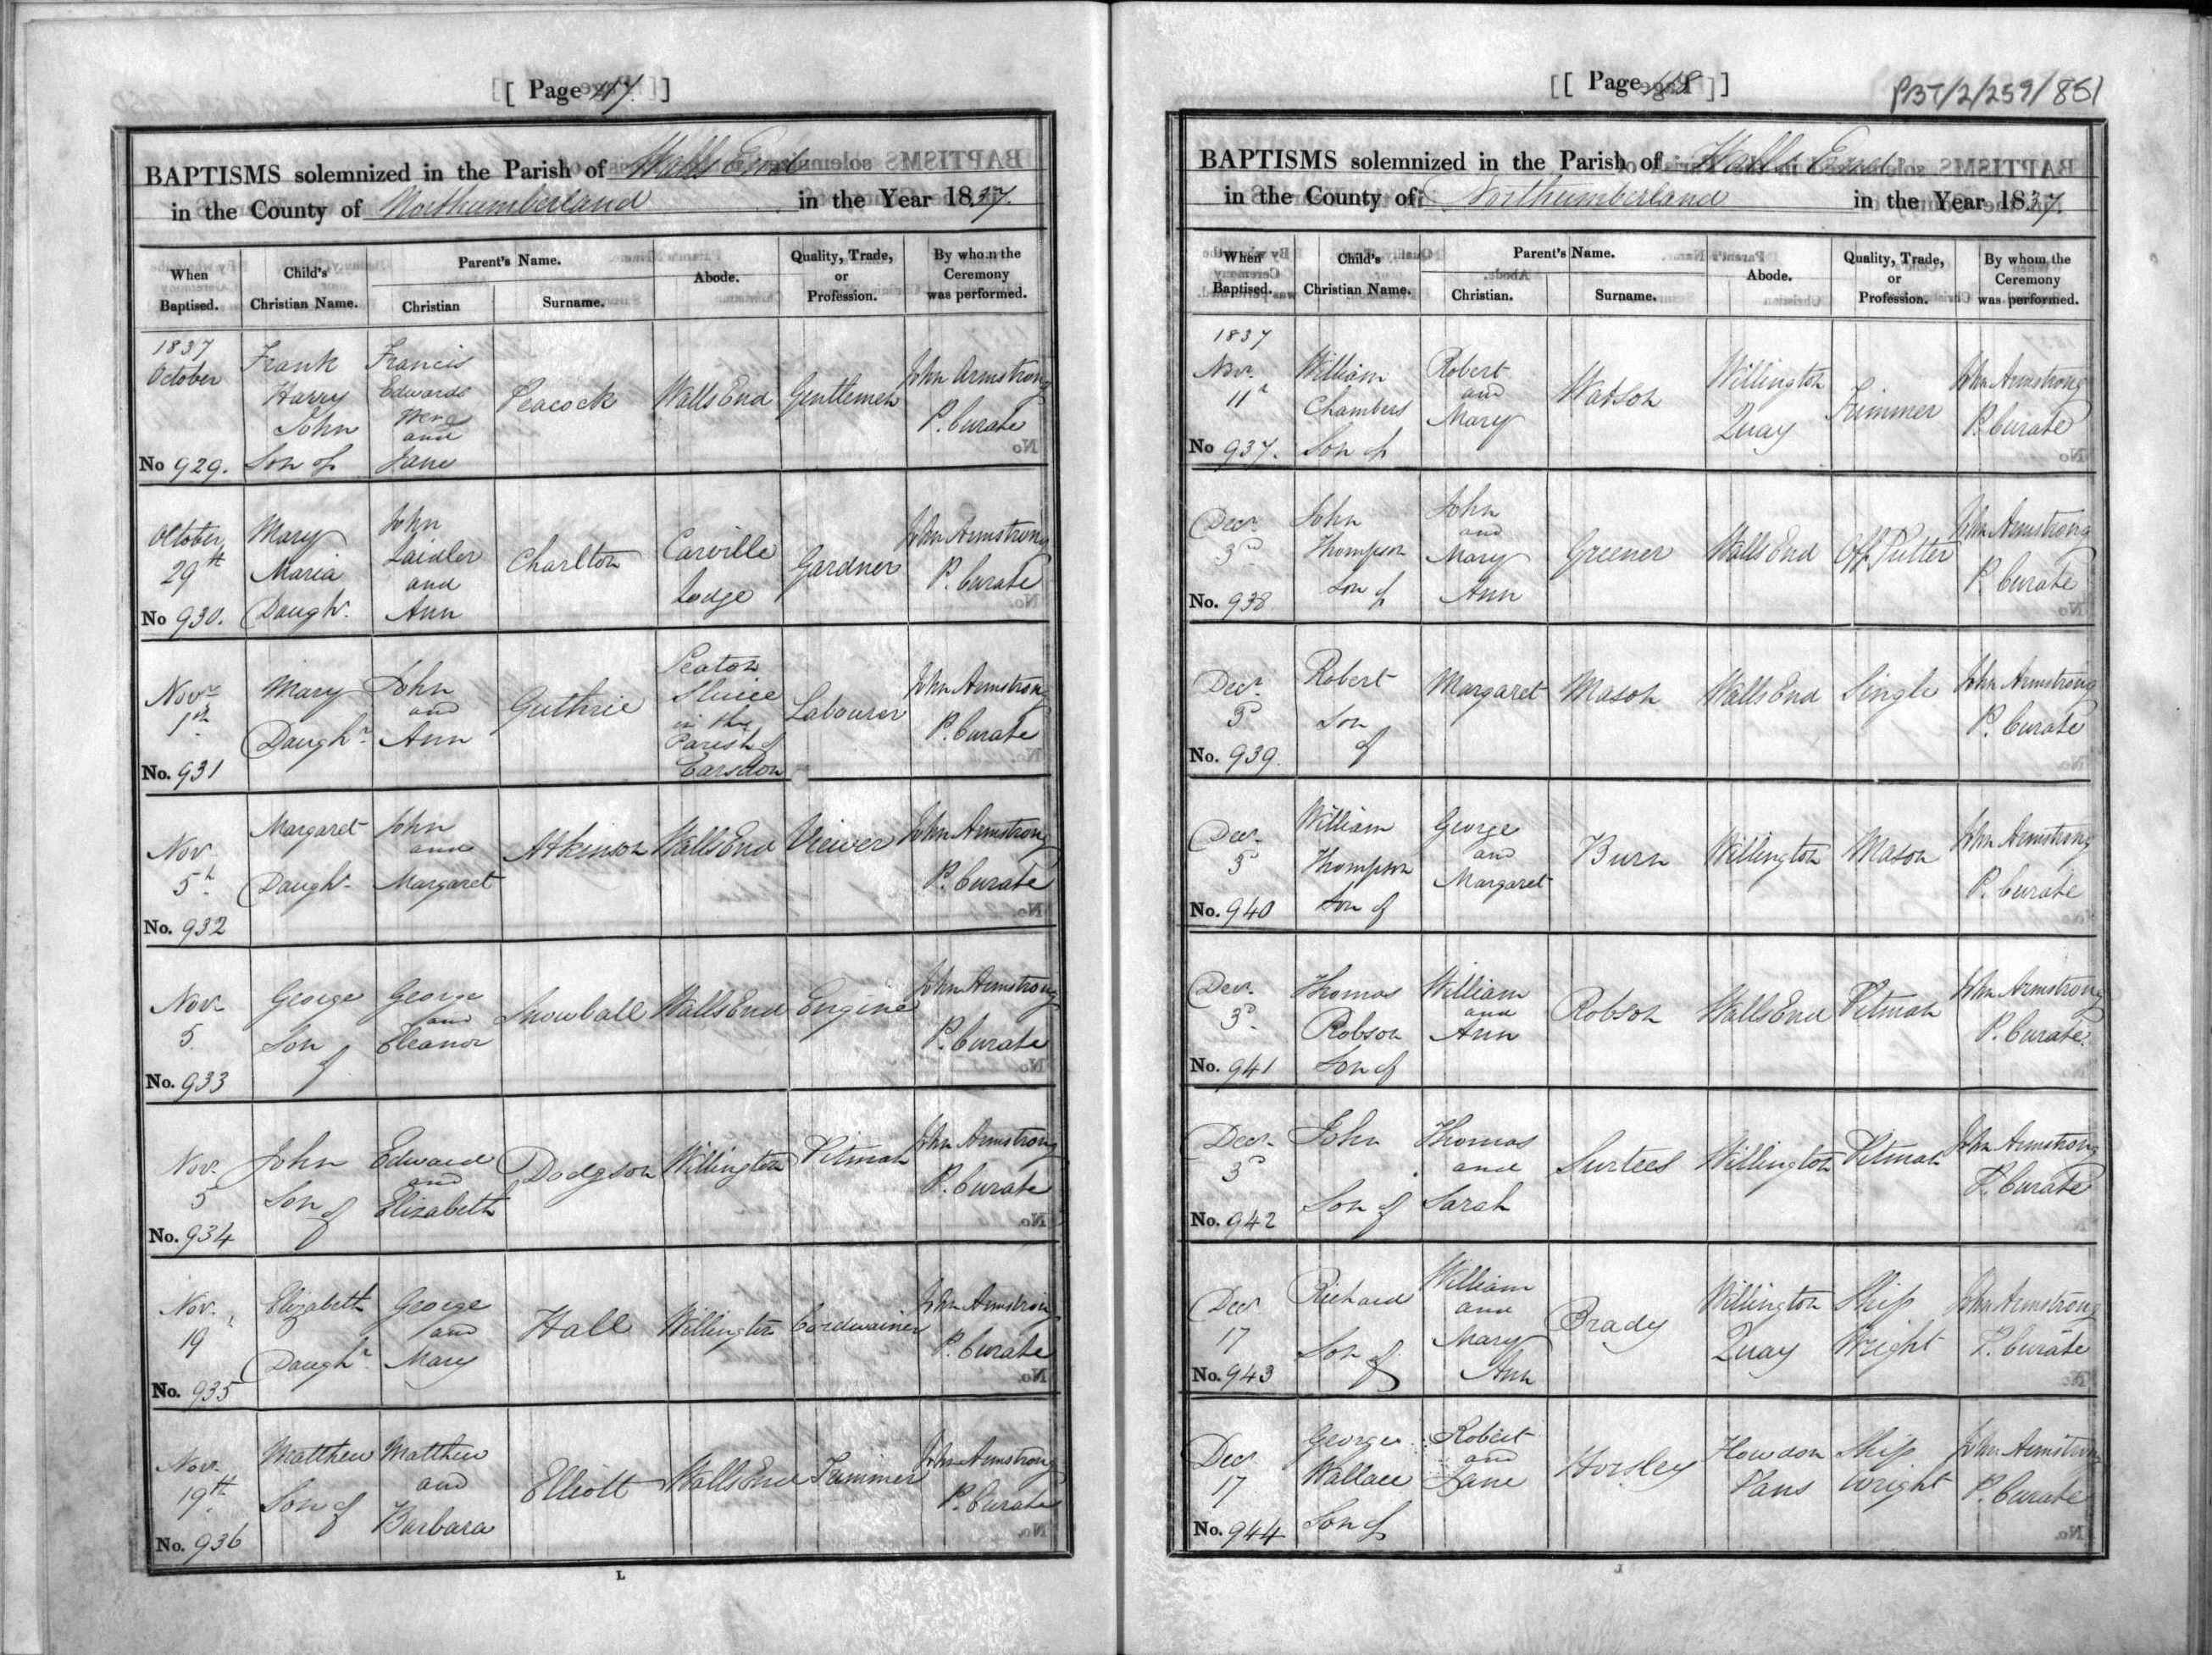 [ Page 117 ]
BAPTISMS solemnized in the Parish of Walls End
in the County of Northumberland in the Year 1837.
When Baptised. Child's Christian Name. Parent's Name. Christian Surname. Abode. Quality, Trade, or Profession. By whom the Ceremony was performed.
1837 October No 929. Frank Harry John Son of Francis Edwards and Jane Peacock Walls End Gentleman John Armstrong P. Curate
October 29th No 930. Mary Maria Daughr. John Laidler and Ann Charlton Carville Lodge Gardner John Armstrong P. Curate
Novr 1st No. 931 Mary Daughr. John and Ann Guthrie Seaton Sluice in the Parish of Earsdon Labourer John Armstrong P. Curate
Nov 5th No. 932 Margaret Daughr John and Margaret Atkinson Walls End Viewer John Armstrong P. Curate
Novr 5 No. 933 George Son of George and Eleanor Snowball Walls End Engine John Armstrong P. Curate
Novr 5 No. 934 John Son of Edward and Elizabeth Dodgson Willington Pitman John Armstrong P. Curate
Nov. 19 No. 935 Elizabeth Daughr. George and Mary Hall Willington Cordwainer John Armstrong P. Curate
Novr 19th No. 936 Matthew Son of Matthew and Barbara Elliott Walls End Trimmer John Armstrong P. Curate
L
[ Page 118 ]
PBT/2/259/851
BAPTISMS solemnized in the Parish of Walls End
in the County of Northumberland in the Year 1837.
When Baptised. Child's Christian Name. Parent's Name. Christian. Surname. Abode. Quality, Trade, or Profession. By whom the Ceremony was performed.
1837 Novr 11th No 937. William Chambers Son of Robert and Mary Watson Willington Quay Trimmer John Armstrong P. Curate
Decr 3d No. 938 John Thompson Son of John and Mary Ann Greener Walls End Off Putter John Armstrong P. Curate
Decr 3d No. 939. Robert Son of Margaret Mason Walls End Single John Armstrong P. Curate
Decr 3d No. 940 William Thompson Son of George and Margaret Burn Willington Mason John Armstrong P. Curate
Decr 3d No. 941 Thomas Robson Son of William and Ann Robson Walls End Pitman John Armstrong P. Curate
Decr 3d No. 942 John Son of Thomas and Sarah Surtees Willington Pitman John Armstrong P. Curate
Decr 17 No. 943 Richard Son of William and Mary Ann Brady Willington Quay Ship Wright John Armstrong P. Curate
Decr 17 No. 944 George Wallace Son of Robert and Jane Horsley Howdon Pans Ship wright John Armstrong P. Curate